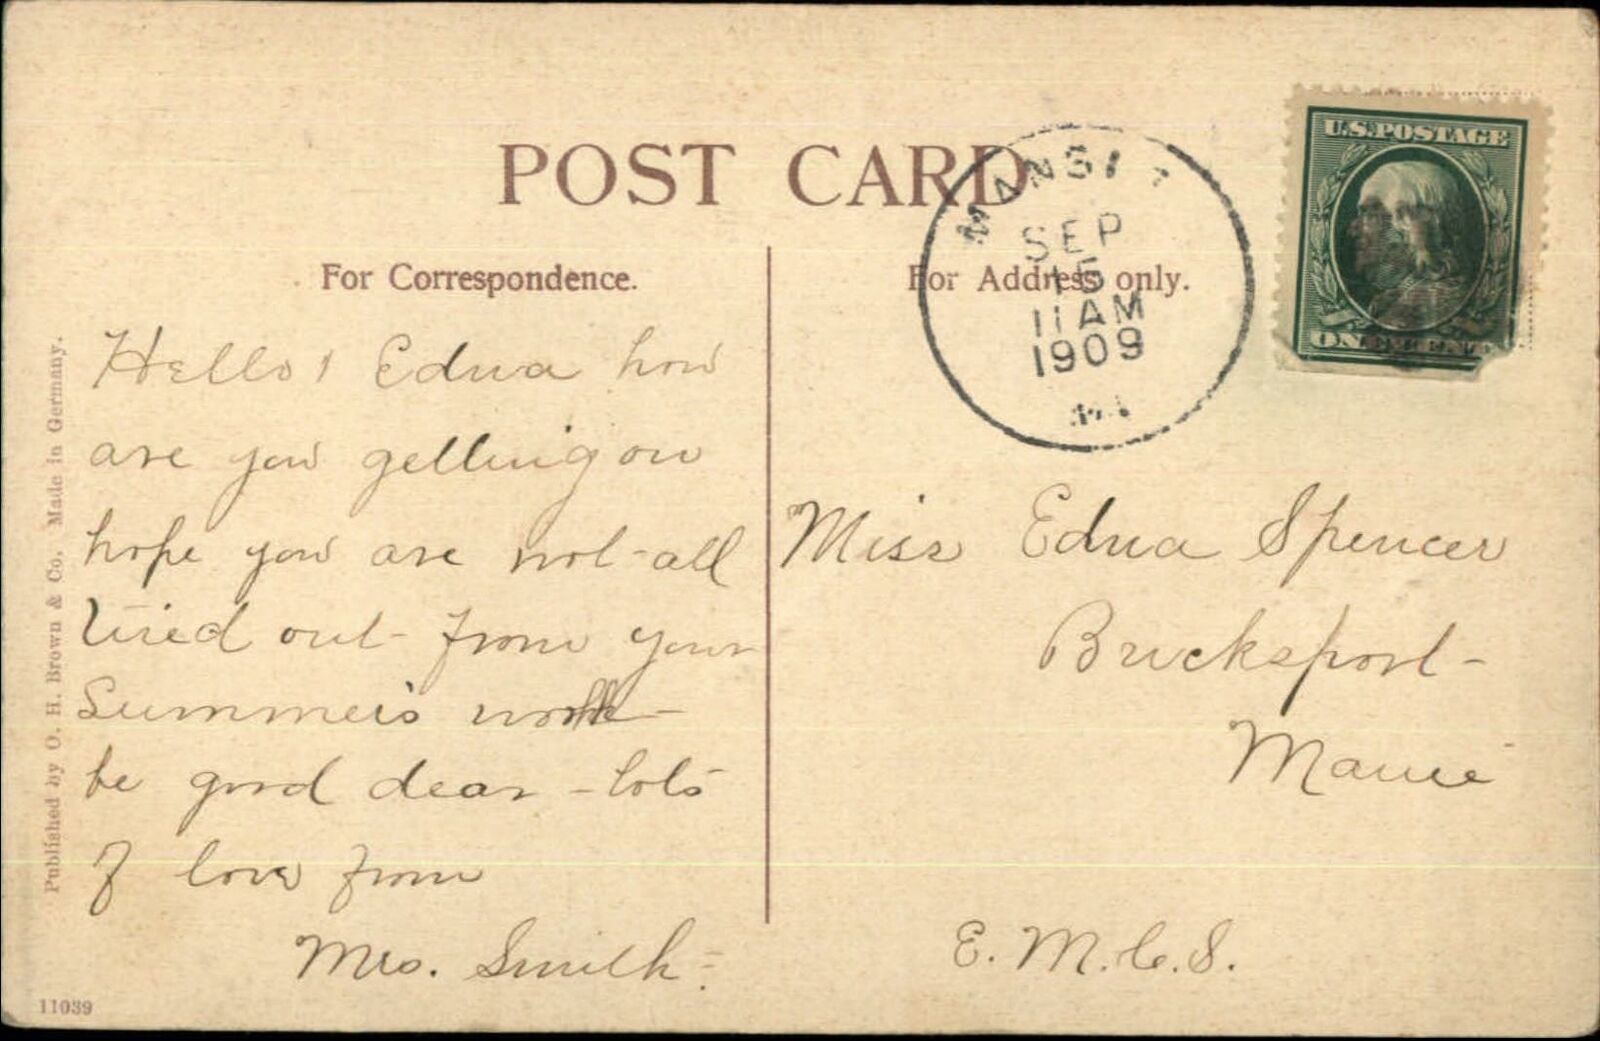 POST CARD
For Correspondence.
For Address only.
MANS
SEP
15
11 AM
1909
U.S.POSTAGE
ONE CENT
Hello! Edna how
are you getting on
hope you are not all
tired out from your
Summers work
be good dear - lots
of love from
Mrs. Smith.
Miss Edna Spencer
Bucksport
Maine
E. M. C. S.
Published by O. H. Brown & Co. Made in Germany.
11039